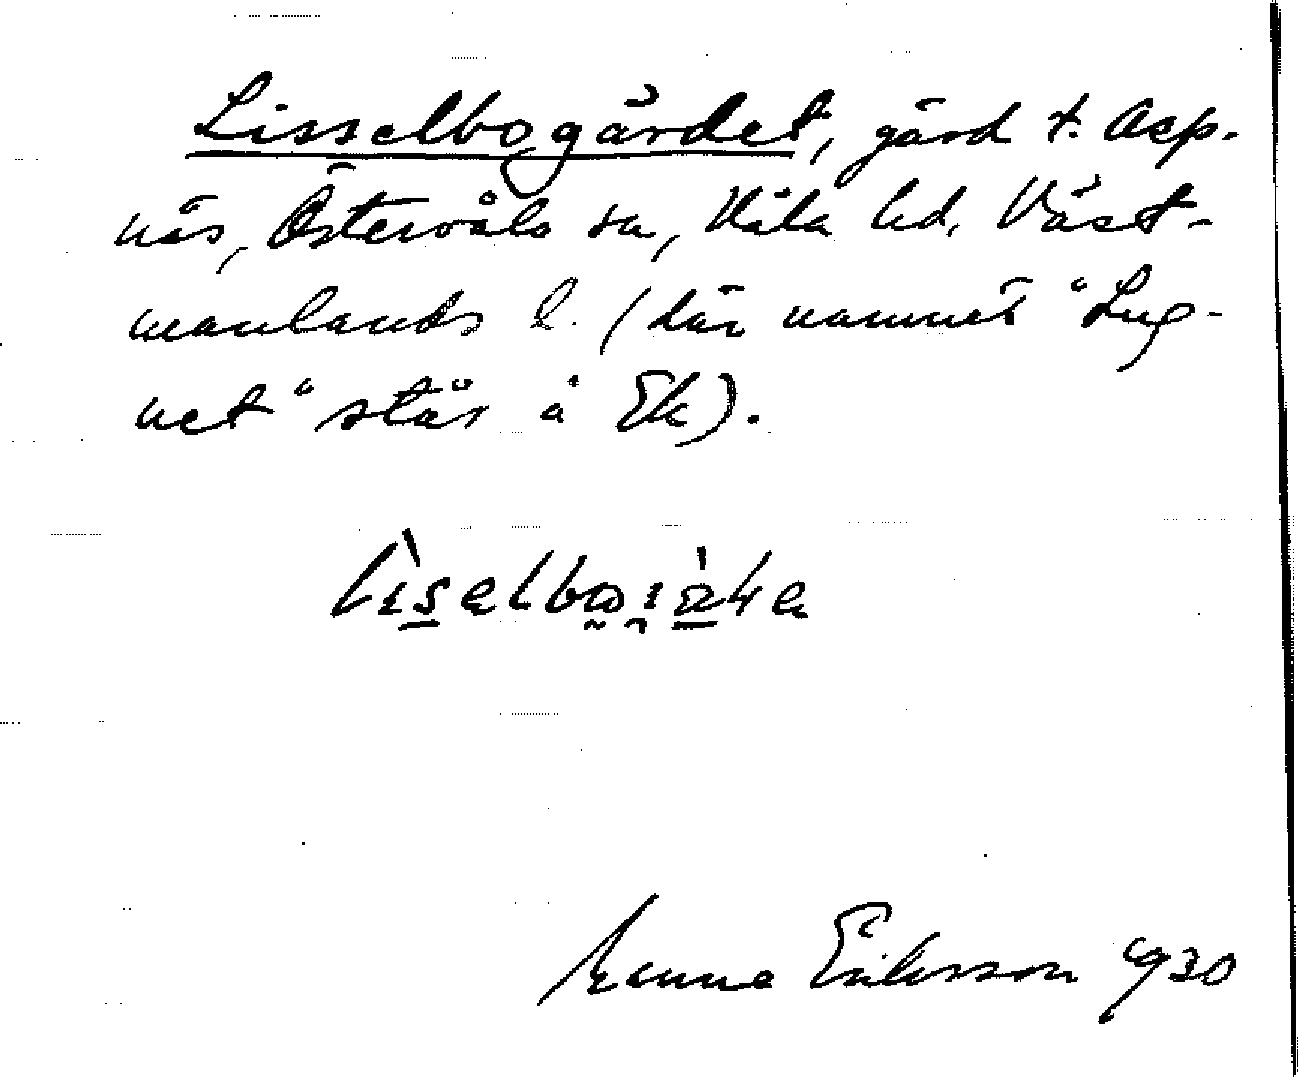 Lisselbogärdet, gård t. Asp-
näs, Östervåla sn, Våla hd, Väst-
manlands l. (där namnet "Lug-
net" står å Ek).
Manne Eriksson 1930